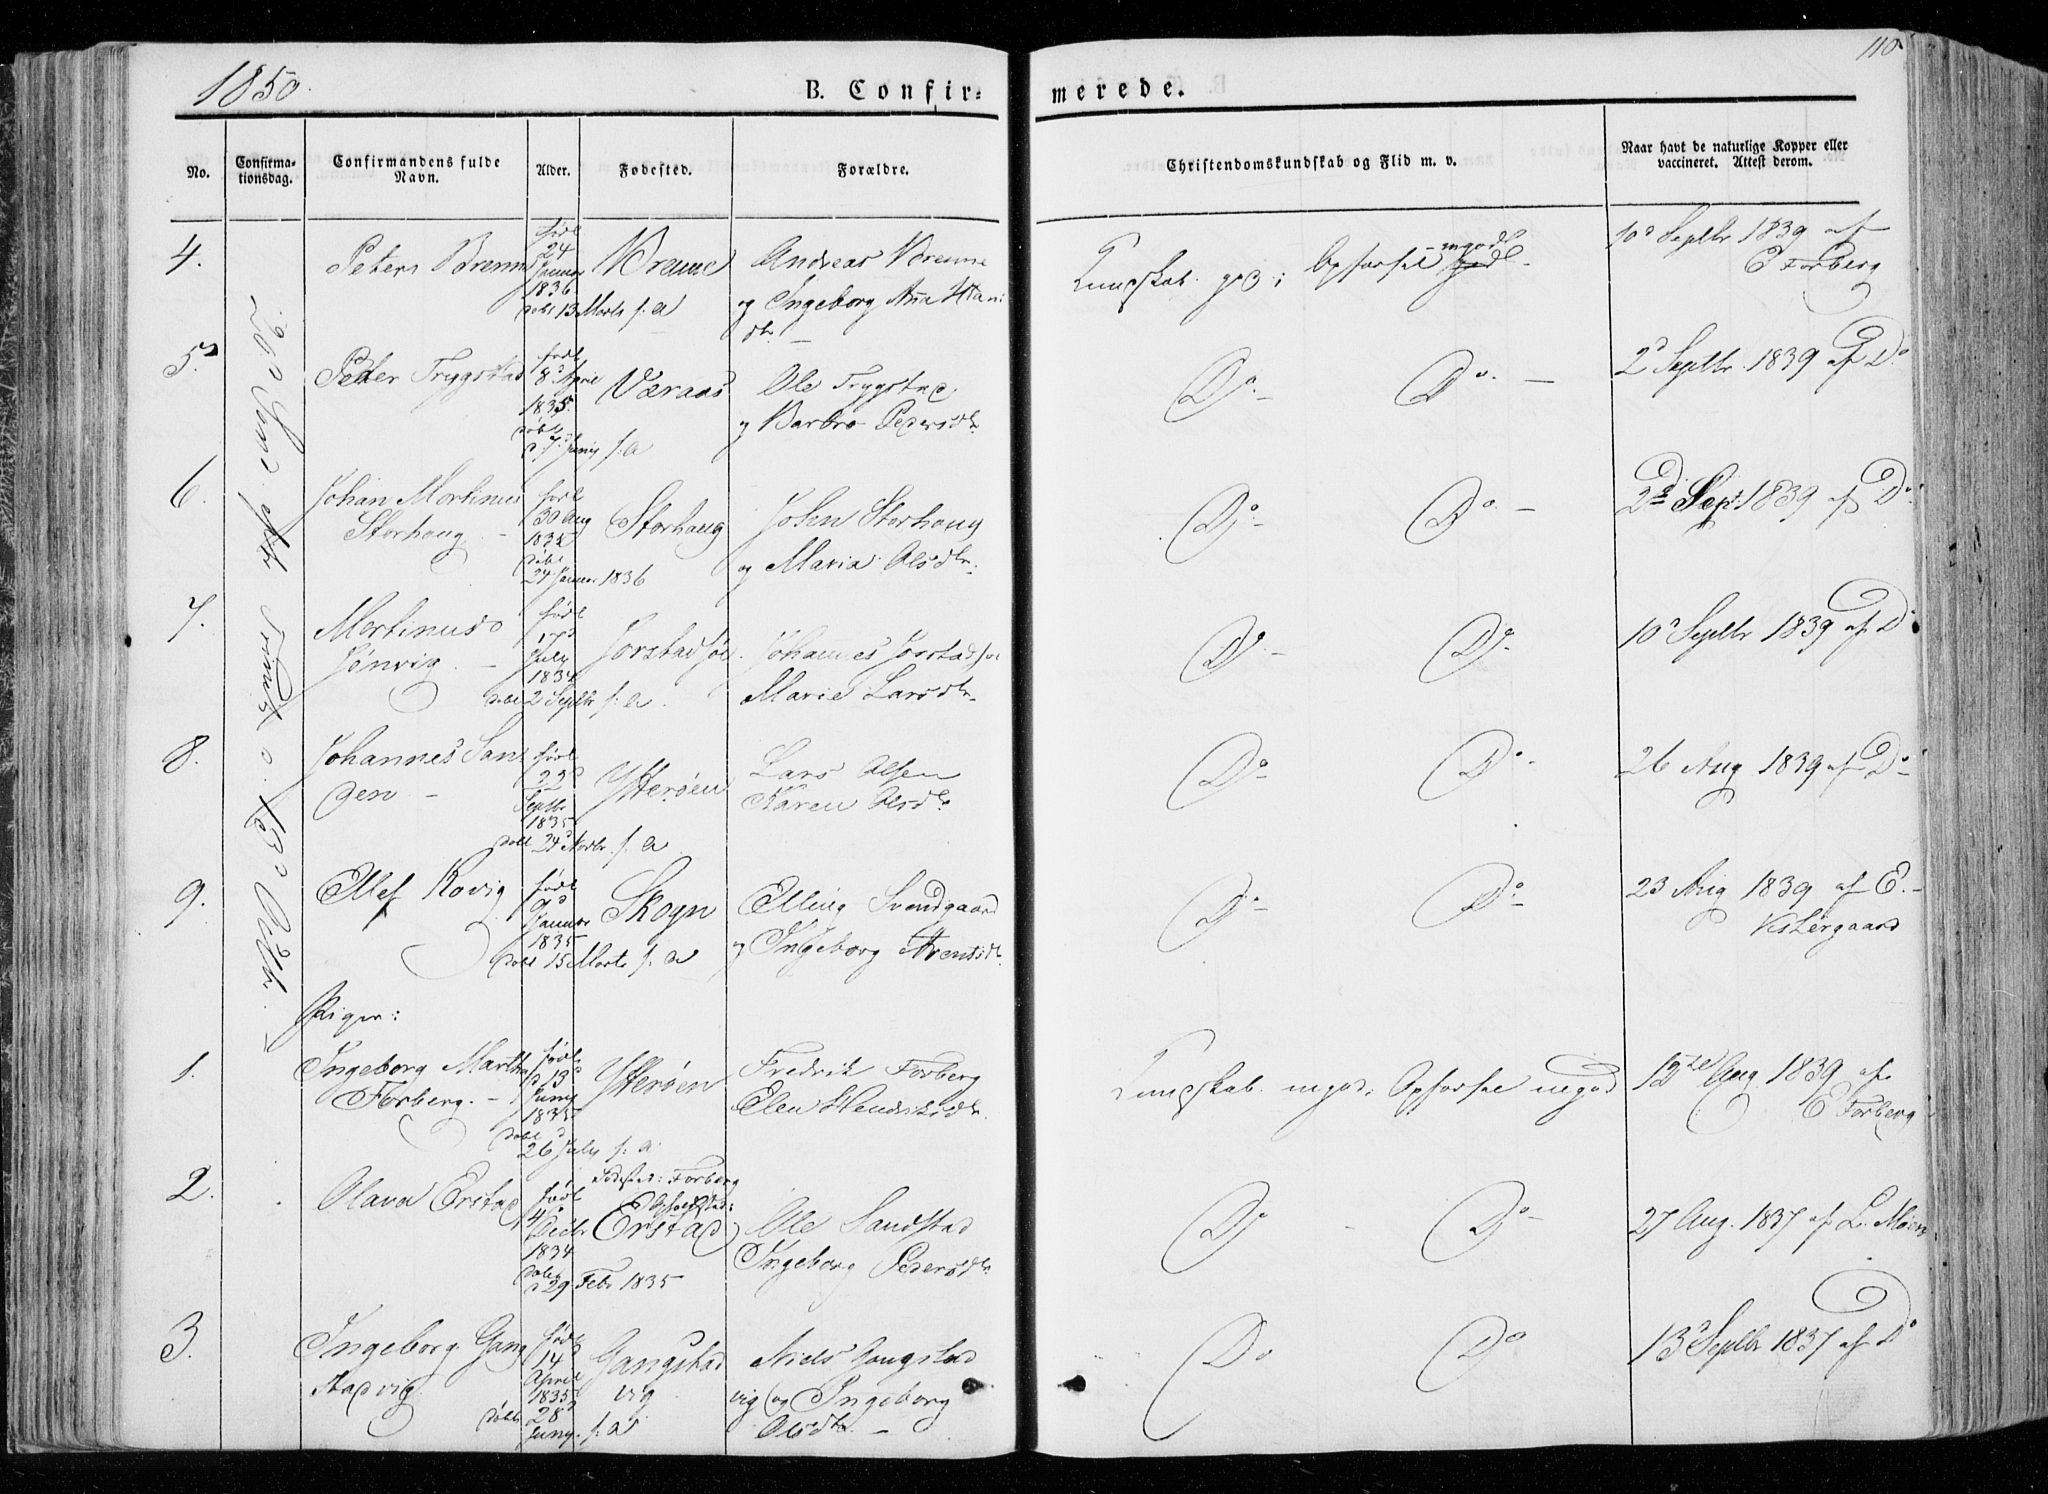 1850.
B. Confir=
merede.
110
No.
Confirma-
tionsdag.
Confirmandens fulde
Navn.
Alder.
Fødested.
Forældre.
Christendomskundskab og Flid m. v.
Naar havt de naturlige Kopper eller
vaccineret. Attest derom.
20d Sond. eft. Trinit. o: 13d Octbr.
4.
født
24
Januar
1836
døbt 13 Marts s. a
Andreas
og Ingeborg Ana Han:
dtr.
Kundskab g
Opførsel
mgodt
godt
10d Septbr 1839 af
E Forberg
5.
Peder Trygstad
født
8d April
1835.
døbt
d 7d Junij s. a
Væraas
Ole Trygstad
og Barbro Pedersdtr.
Do.-
Do. -
2d Septbr. 1839 af Do
6.
Johan Mortinus
Storhaug -
født
30 Aug
1835
døbt
24 Januar 1836
Storhaug
John Storhaug
og Maria Olsdtr.
Do.-
Do. -
2d Sept. 1839 af Do
7.
Mortinus
Jønvig -
født
17d
July
1834
døbt 2 Septbr s. a
Jorstad
Johannes Jorstad
Marie Larsdtr.
Do. -
Do.
10d Septbr 1839 af Do
8.
Johannes San
den -
født
22d
Septbr
1835
døbt 24d Novbr. s. a
Ytterøen
Lars Olsen
Karen Olsdtr.
Do -
Do.
26 Aug 1839 af Do
9.
Ellef Rovig
født
9d
Januar
1835
døbt 15 Marts s. a
Skogn
Elling Svendgaard
og Ingeborg Arentsdtr.
Do -
Do.
23 Aug 1839 af E. -
Vestergaard
Piger:
1.
Ingeborg Martha
Forberg. -
født
d 13d
Juny
1835
døbt d
26 July s. a.
Ytterøen
Fredrik Forberg
Elen Hendriksdtr.
Kundskab mgod. Opførsel mgod
13te Aug. 1839 af
E Forberg
2.
Olava Erstad
født
4d
Decbr
1834
døbt
d 29 Febr 1835
Fødested: Forberg
Opholdsted:
Erstad
Ole Sandstad
Ingeborg Pedersdtr.
Do -
Do -
27 Aug. 1837 af L. Moen
3.
Ingeborg Gang
stadvig
født
14
April
1835
døbt 28d
Juny. s. a
Gangstad
vig
Niels Gangstad
vig og Ingeborg
Olsdtr. -
Do
Do
13d Septbr 1837 af Do